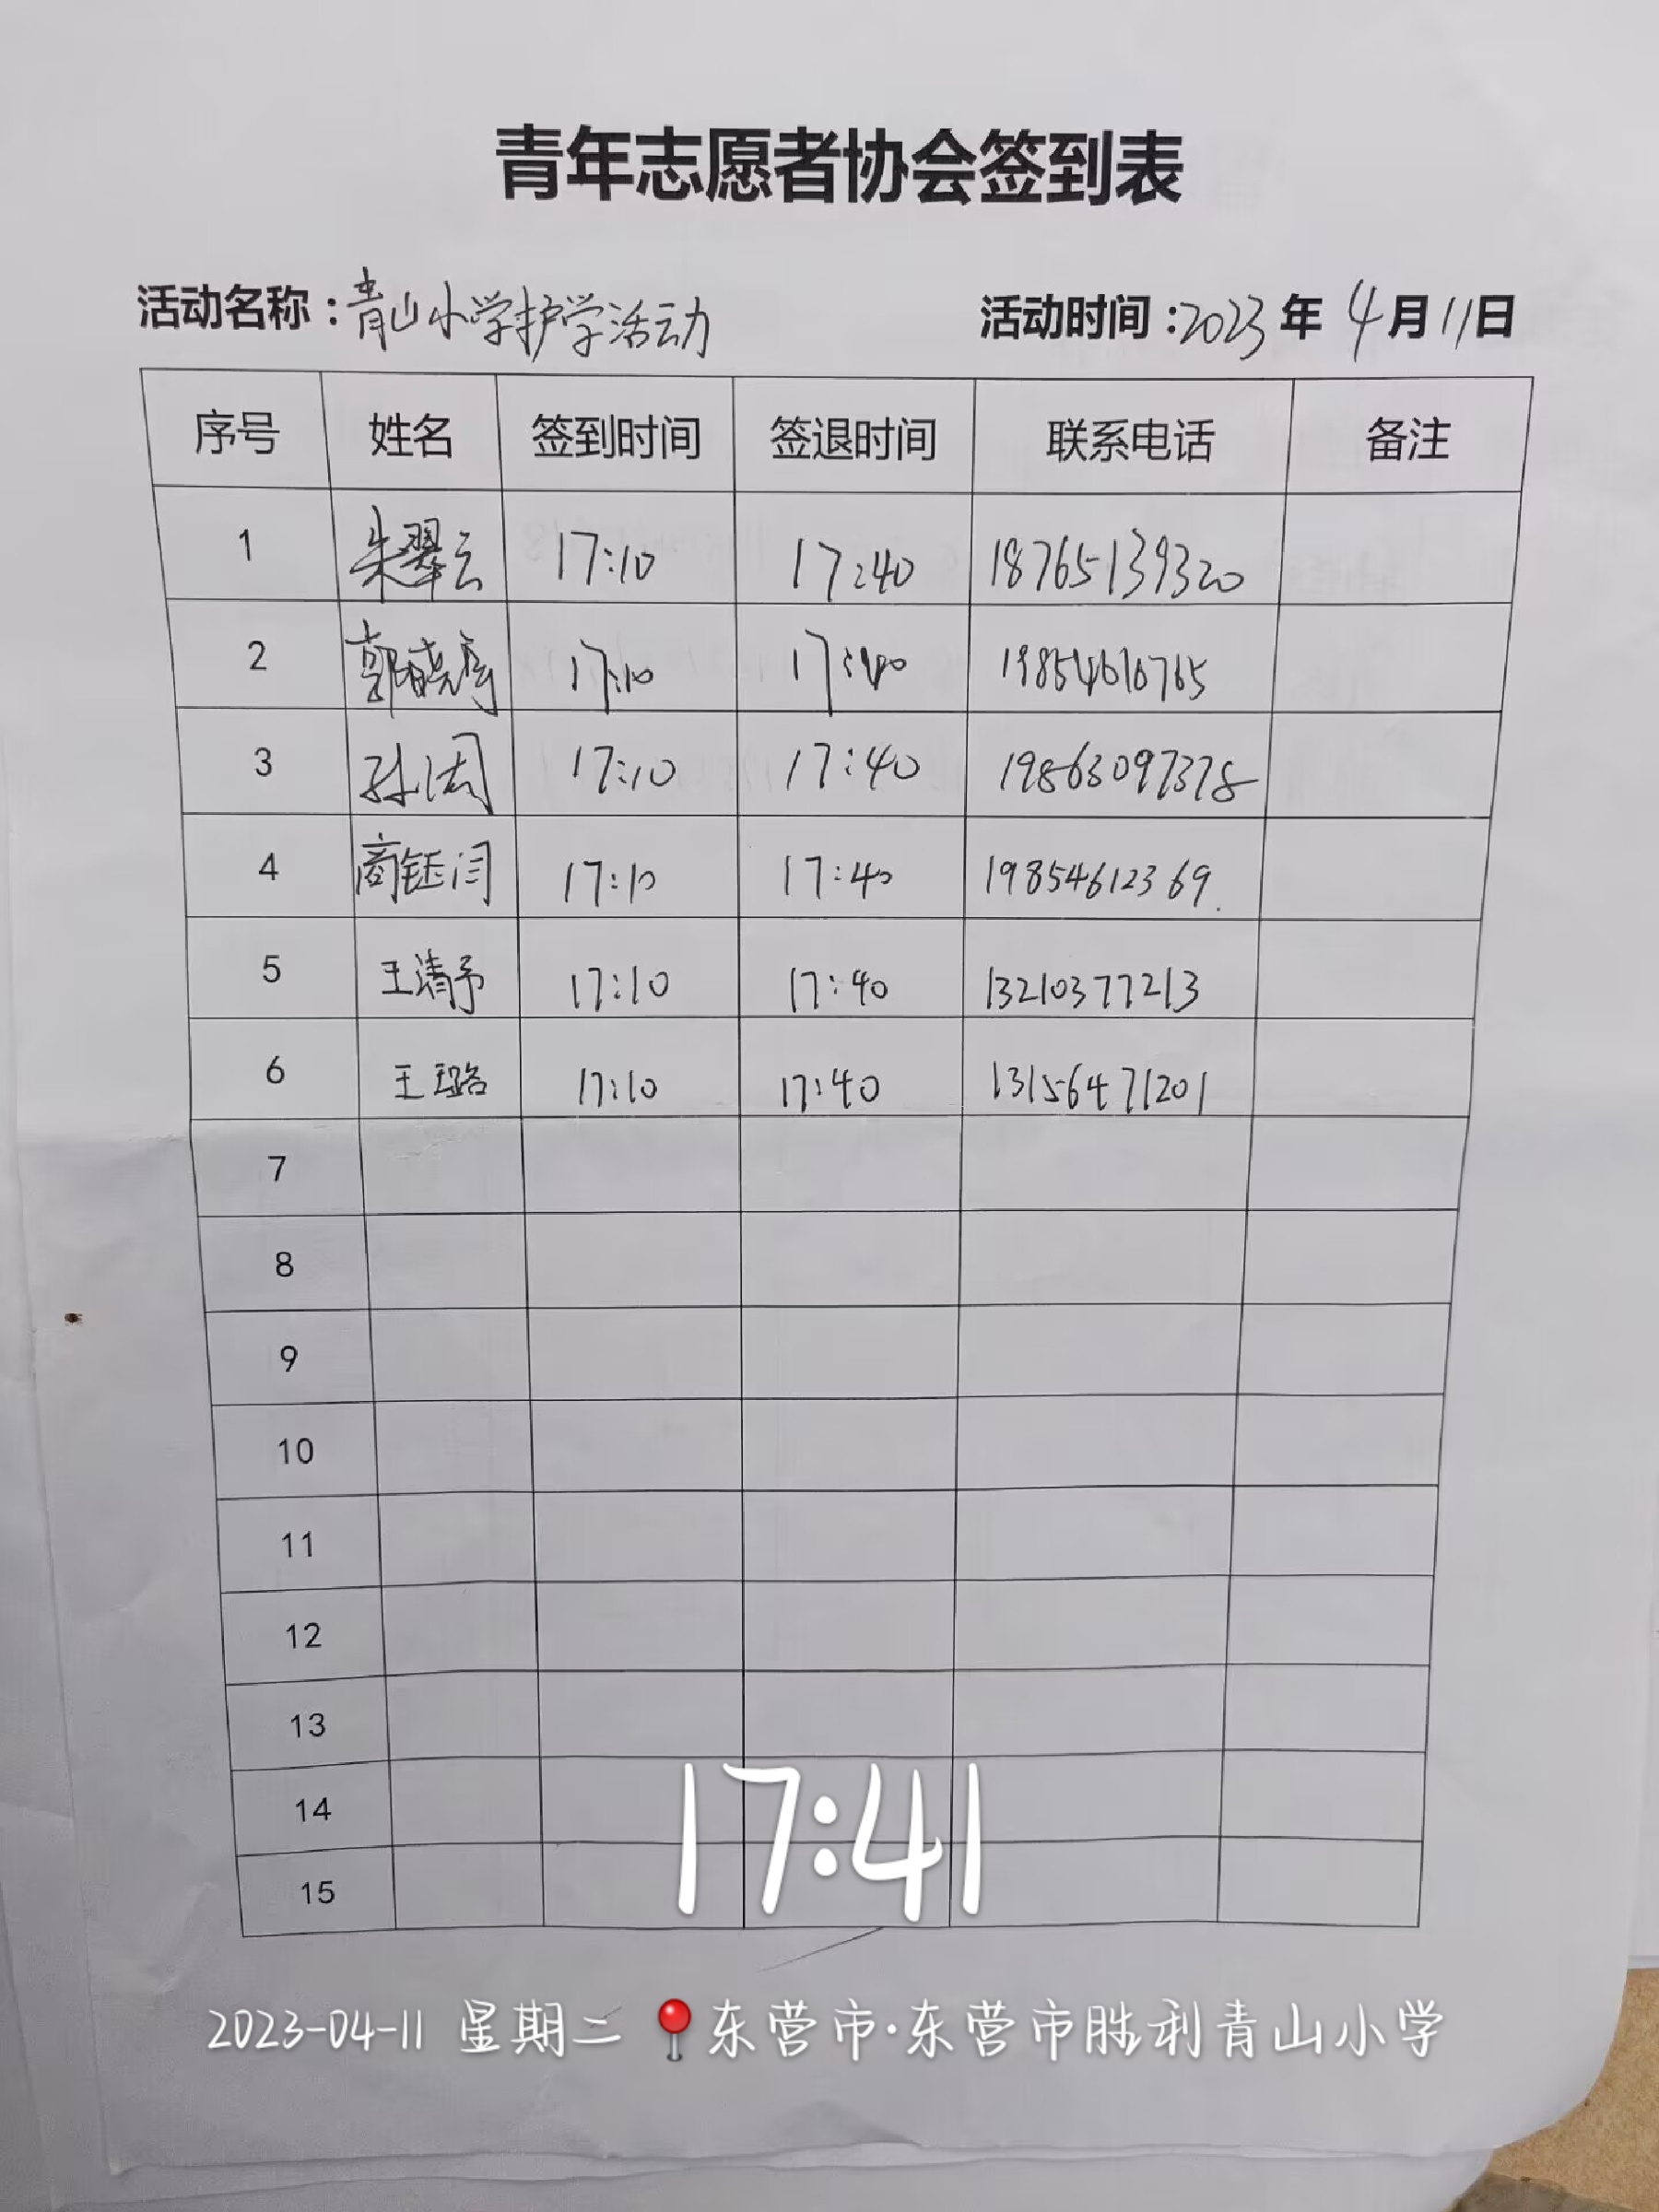 青年志愿者协会签到表
活动名称：青山小学护学活动 活动时间：2023年4月11日
序号 姓名 签到时间 签退时间 联系电话 备注
1 朱翠云 17:10 17:40 18765139320
2 郭晓彦 17:10 17:40 19854610765
3 孙闳 17:10 17:40 19863097378
4 商钰闫 17:10 17:40 19854612369.
5 王清予 17:10 17:40 13210377213
6 王璐 17:10 17:40 13156471201
7
8
9
10
11
12
13
14
15
17:41
2023-04-11 星期二 东营市·东营市胜利青山小学